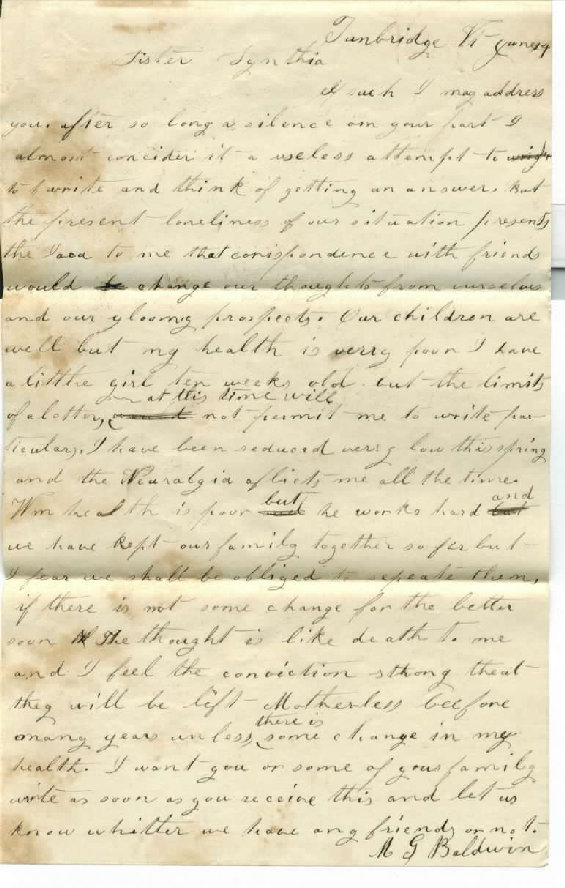 Tunbridge Vt June 19
Sister Synthia
if such I may address
you, after so long a silence on your part I
almost concider it a useless attempt to
to write and think of getting an answer. but
the present loneliness of our situation presents
the Idea to me that corispondence with friends
would be change our thoughts from ourselves
and our gloomy prospects. Our children are
well but my health is verry poor I have
a little girl ten weeks old. but the limits
of a letter, at this time will not permit me to write par-
ticulars, I have been reduced verry low this spring
and the Neuralgia aflicts me all the time.
Wm health is poor but he works hard and
we have kept our family together so fer but
I fear we shall be obliged to sepeate them,
if there is not some change for the better
soon the thought is like death to me
and I feel the conviction strong theat
they will be left Motherless beefore
many years unless, there is some change in my
health. I want you or some of your family
write as soon as you receive this and let us
know whitter we have any friends or not.
M G Baldwin